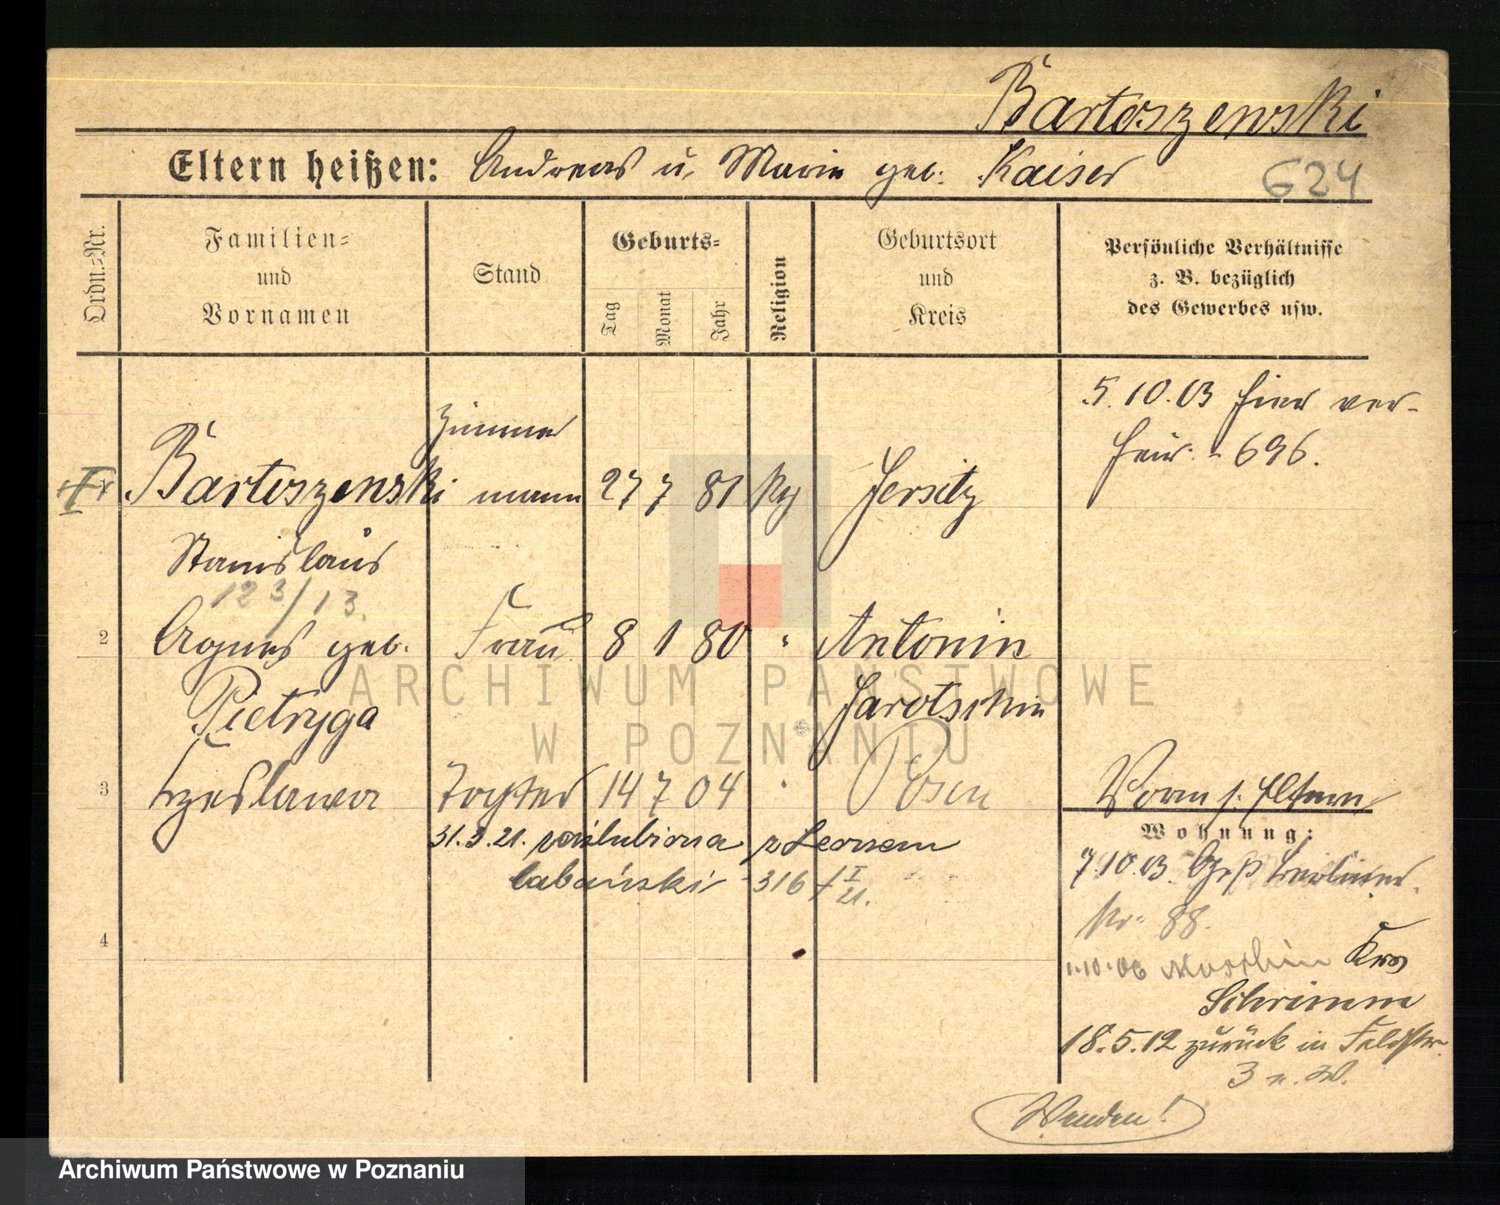 Bartoszewski
Eltern heißen: Andreas u. Marie geb. Kaiser 624
Ordn.-Nr. Familien- und Vornamen Stand Geburts- Tag Monat Jahr Religion Geburtsort und Kreis Persönliche Verhältnisse z. B. bezüglich des Gewerbes usw.
5.10.03 hier ver-
heir. 696.
Zimmer
Bartoszewski mann 27 7 81 Jersitz
Stanislaus
123/13.
2 Agnes geb. Frau 8 1 80 " Antonin
Pietryga Jarotschin
3 Czeslawa Tochter 14 7 04 " Posen
31.3.21. z Leonem
Łabański 316/I 21.
4
Wohnung:
7.10.03. Berliner
Nr. 88.
1.10.06 Moschin Krs
Schrimm
18.5.12 zurück in Feldstr.
3
Wenden!
ARCHIWUM PAŃSTWOWE
W POZNANIU
Archiwum Państwowe w Poznaniu